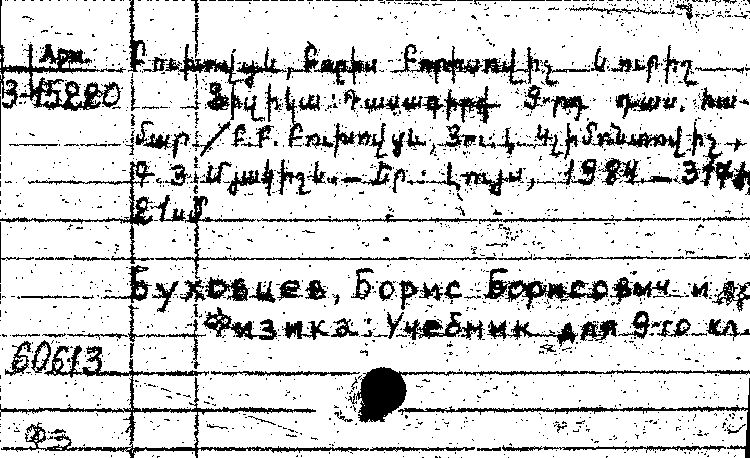 Арм.
3-15220
Բուխովցև, Բորիս Բորիսովիչ և ուրիշ
Ֆիզիկա: Դասագիրք 9-րդ դաս. հա-
մար / Բ.Բ. Բուխովցև, Յու. Լ. Կլիմոնտովիչ,
Գ. Յ. Մյակիշև. – Եր.: Լույս, 1984 – 317 էջ
21 սմ
Буховцев, Борис Борисович и др
Физика: Учебник для 9-го кл.
60613
Ф3